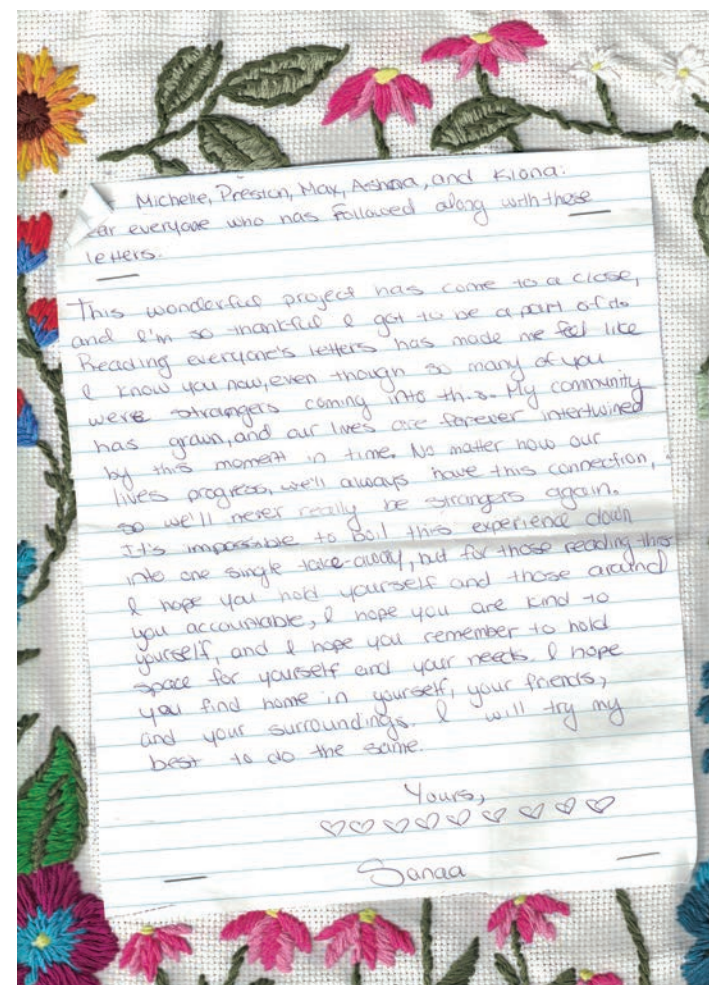 Michelle, Preston, Max, Ashna, and Kiona:
ear everyone who has followed along with these
letters.
This wonderful project has come to a close,
and I'm so thankful I got to be a part of it.
Reading everyone's letters has made me feel like
I know you now, even though so many of you
were strangers coming into this. My community
has grown, and our lives are forever intertwined
by this moment in time. No matter how our
lives progress, we'll always have this connection,
so we'll never really be strangers again.
It's impossible to boil this experience down
into one single take-away, but for those reading this
I hope you hold yourself and those around
you accountable, I hope you are kind to
yourself, and I hope you remember to hold
space for yourself and your needs. I hope
you find home in yourself, your friends,
and your surroundings. I will try my
best to do the same.
Yours,
♡♡♡♡♡♡♡♡♡
Sanaa